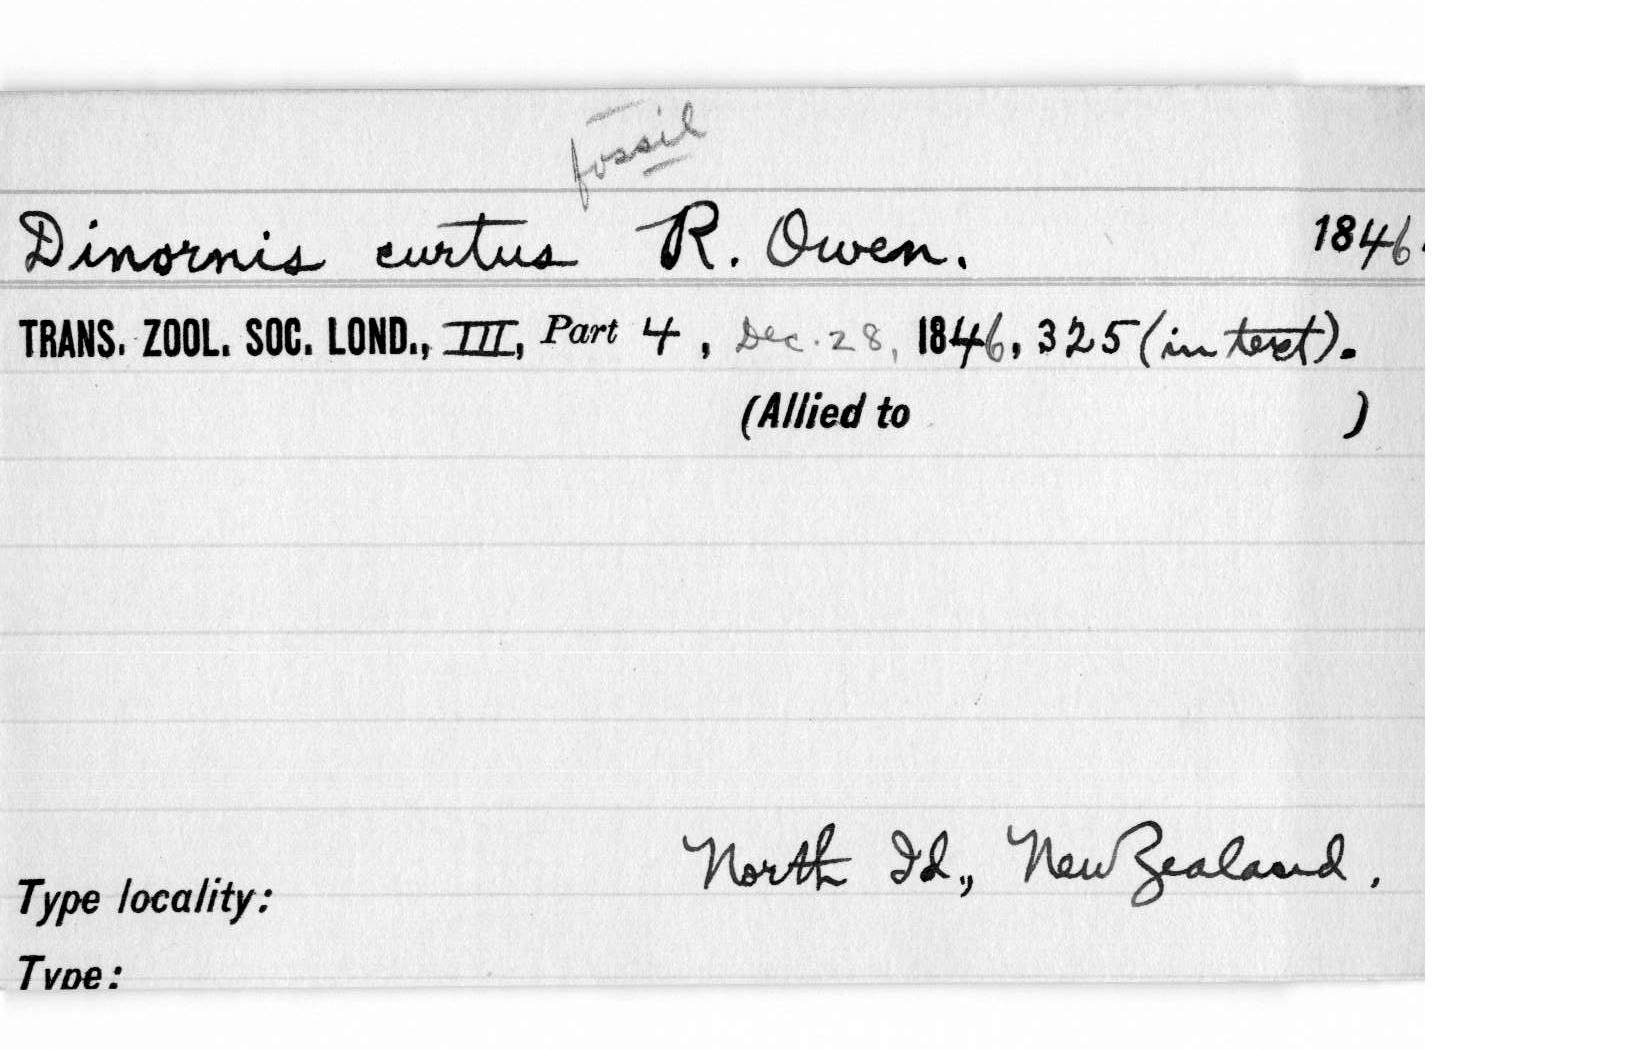 fossil
Dinornis curtus R. Owen. 1846.
TRANS. ZOOL. SOC. LOND., III, Part 4, Dec. 28, 1846, 325 (in text).
(Allied to )
North Id., New Zealand.
Type locality:
Type: